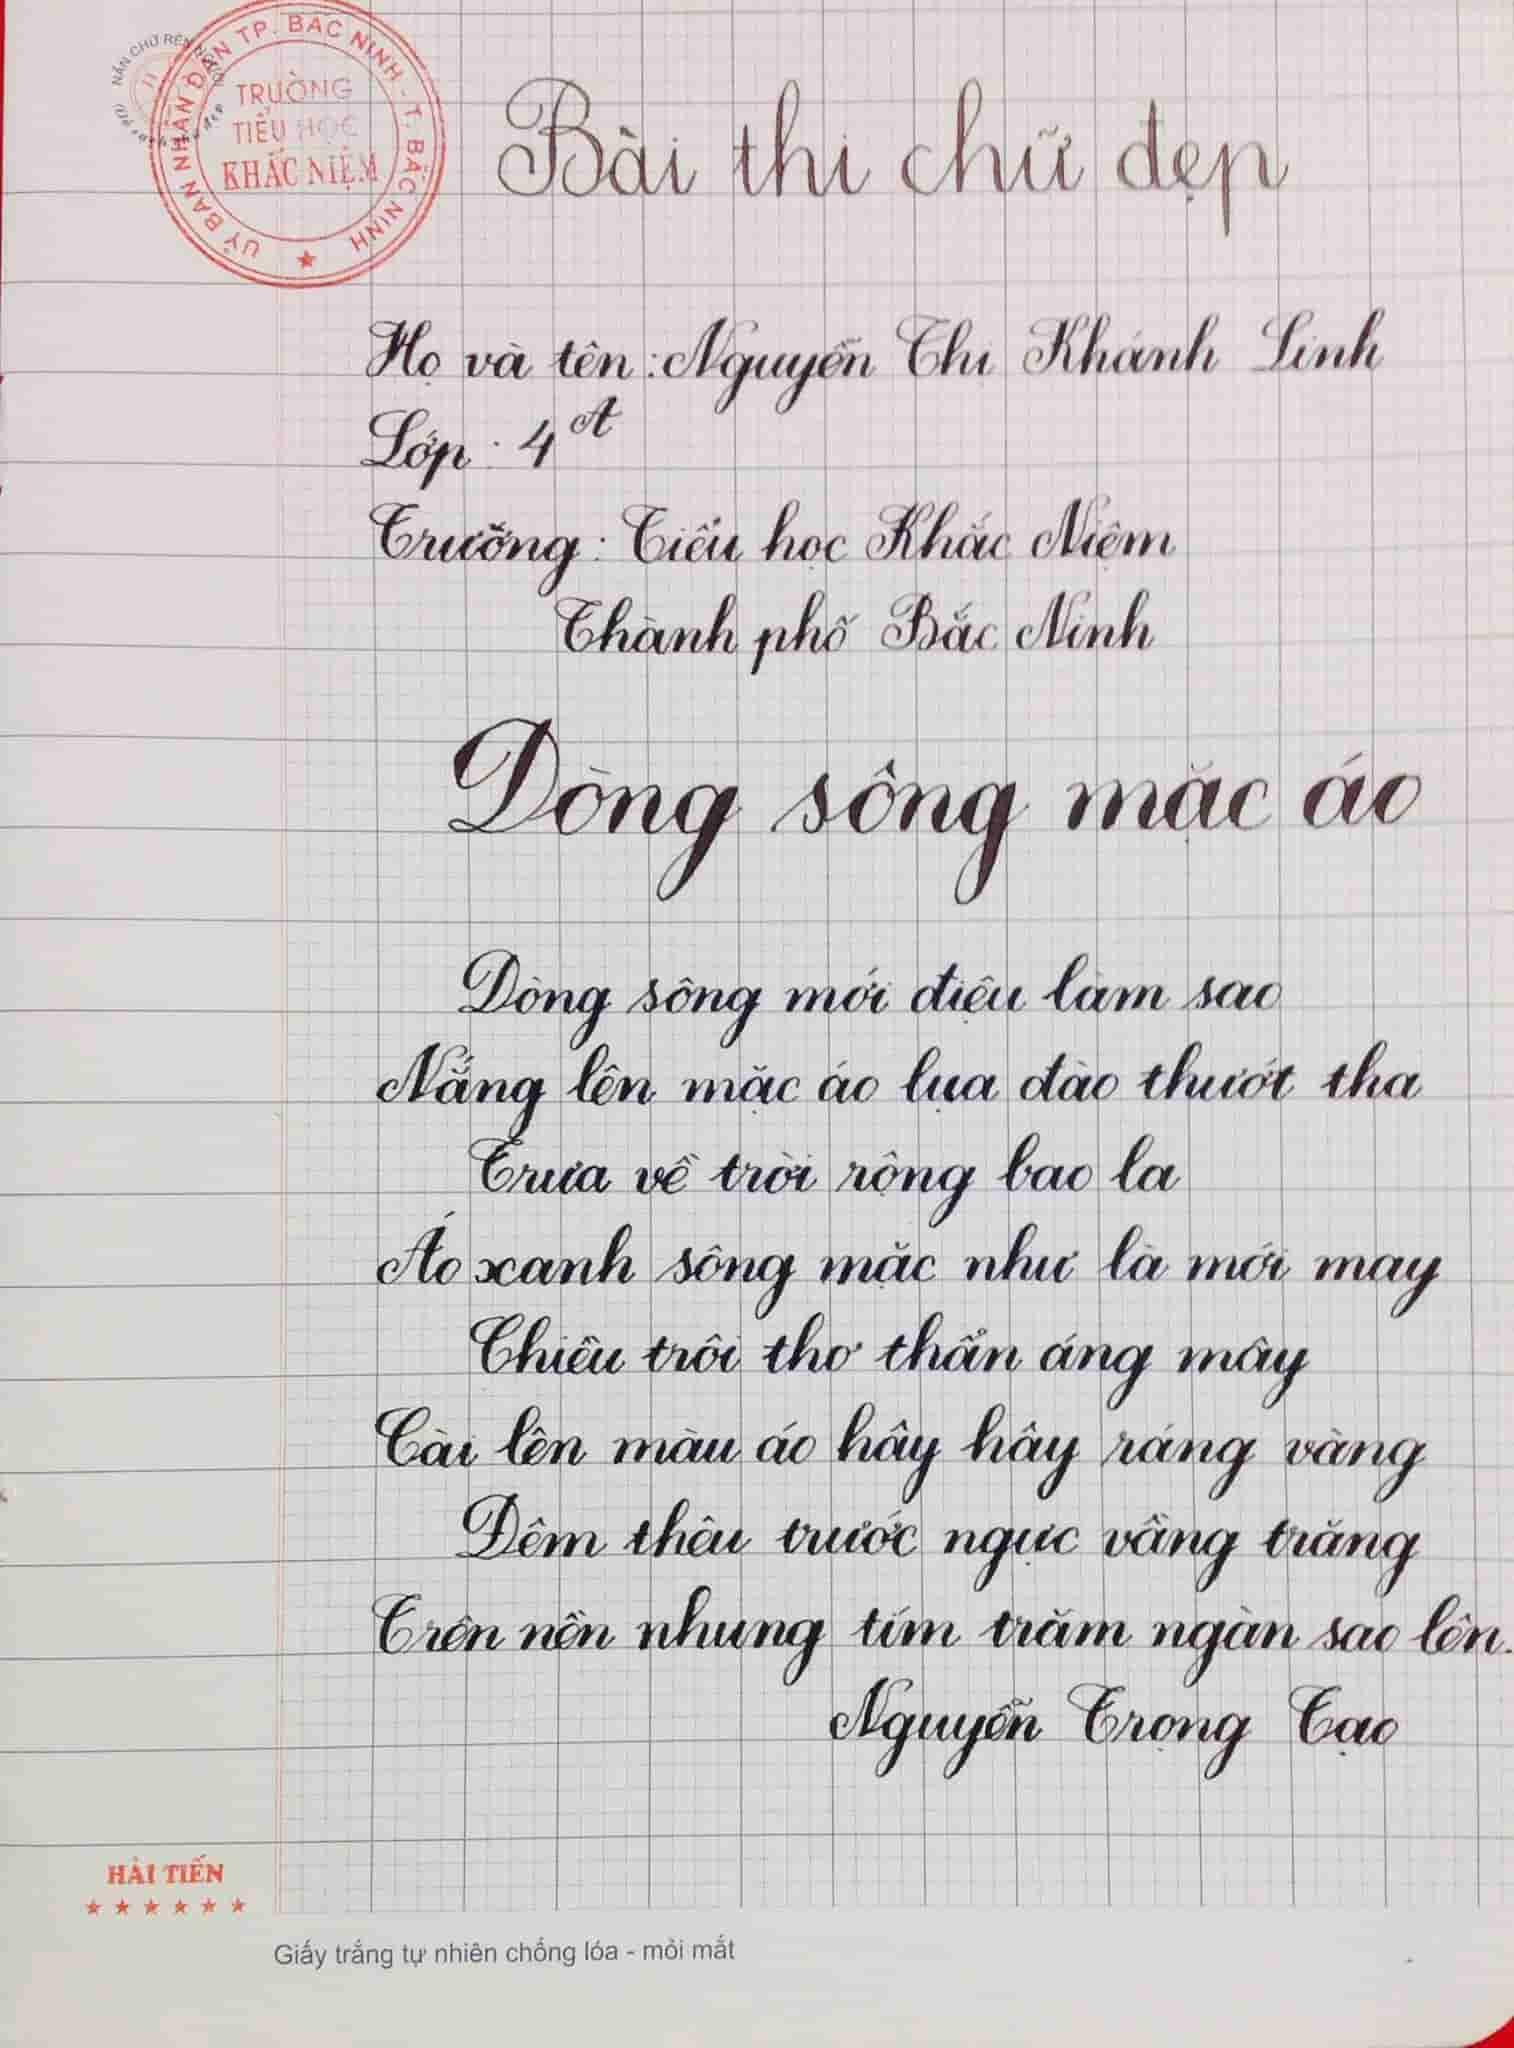 ỦY BAN NHÂN DÂN TP. BẮC NINH - T. BẮC NINH
TRƯỜNG
TIỂU HỌC
KHẮC NIỆM
NẮN CHỮ RÈN
Bài thi chữ đẹp
Họ và tên: Nguyễn Thi Khánh Linh
Lớp: 4A
Trường: Tiểu học Khắc Niệm
Thành phố Bắc Ninh
Dòng sông mặc áo
Dòng sông mới điệu làm sao
Nắng lên mặc áo lụa đào thướt tha
Trưa về trời rộng bao la
Áo xanh sông mặc như là mới may
Chiều trôi thơ thẩn áng mây
Cài lên màu áo hây hây ráng vàng
Đêm thêu trước ngực vầng trăng
Trên nền nhung tím trăm ngàn sao lên.
Nguyễn Trọng Tạo
HẢI TIẾN
Giấy trắng tự nhiên chống lóa - mỏi mắt